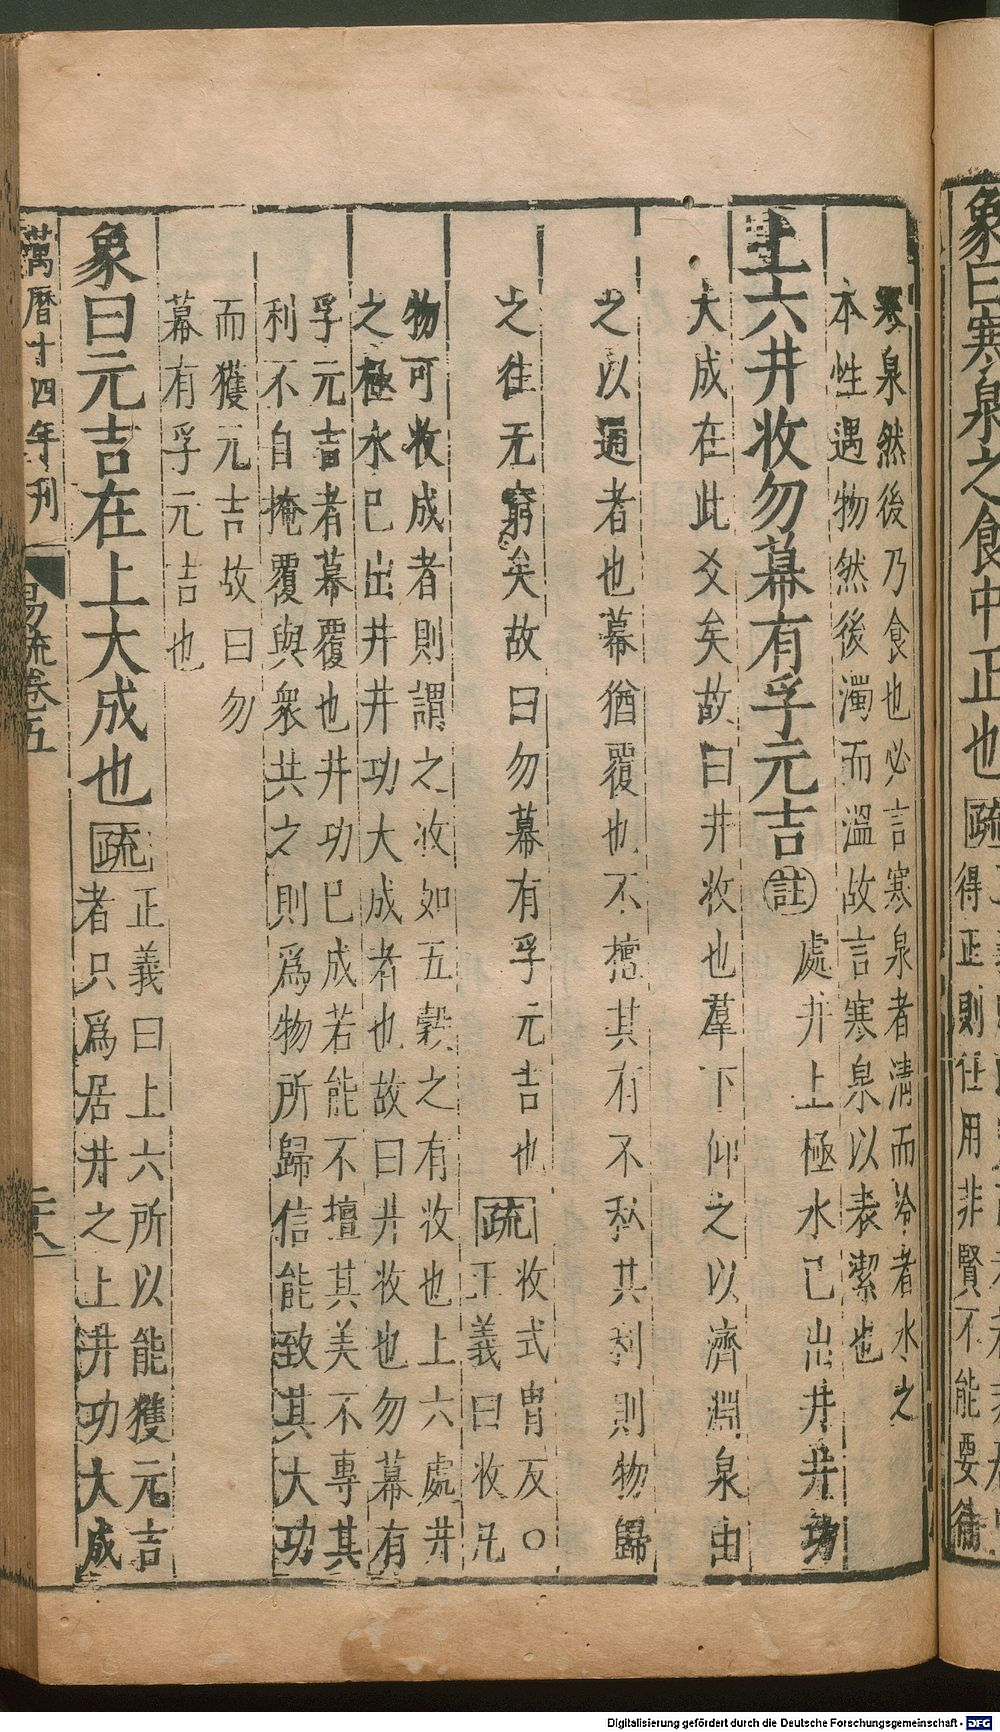 象曰寒泉之食中正也疏
得正則任用非賢不能要待
寒泉然後乃食也必言寒泉者清而冷者水之
本性遇物然後濁而溫故言寒泉以表潔也
上六井收勿幕有孚元吉註處井上極水已出井井功
大成在此爻矣故曰井收也羣下仰之以濟淵泉由
之以通者也幕猶覆也不擅其有不私其利則物歸
之往无窮矣故曰勿幕有孚元吉也疏收式冑反○
正義曰收凡
物可收成者則謂之收如五穀之有收也上六處井
之極水已出井井功大成者也故曰井收也勿幕有
孚元吉者幕覆也井功已成若能不擅其美不專其
利不自掩覆與衆共之則爲物所歸信能致其大功
而獲元吉故曰勿
幕有孚元吉也
象曰元吉在上大成也疏正義曰上六所以能獲元吉
者只爲居井之上井功大成
萬曆十四年刊 易疏卷五 二十八
Digitalisierung gefördert durch die Deutsche Forschungsgemeinschaft - DFG